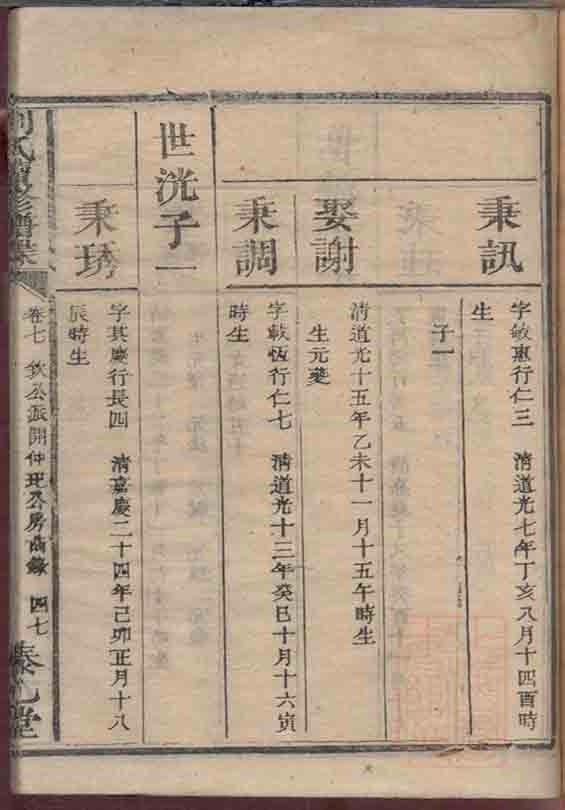 秉訊
字敏惠行仁三　清道光七年丁亥八月十四酉時
生
子一
娶謝
清道光十五年乙未十一月十五午時生
生元夔
秉調
字載恆行仁七　清道光十三年癸巳十月十六寅
時生
世洸子一
秉琇
字其慶行長四　清嘉慶二十四年己卯正月十八
辰時生
卷七　欽公派開仲玘公房齒錄　四七